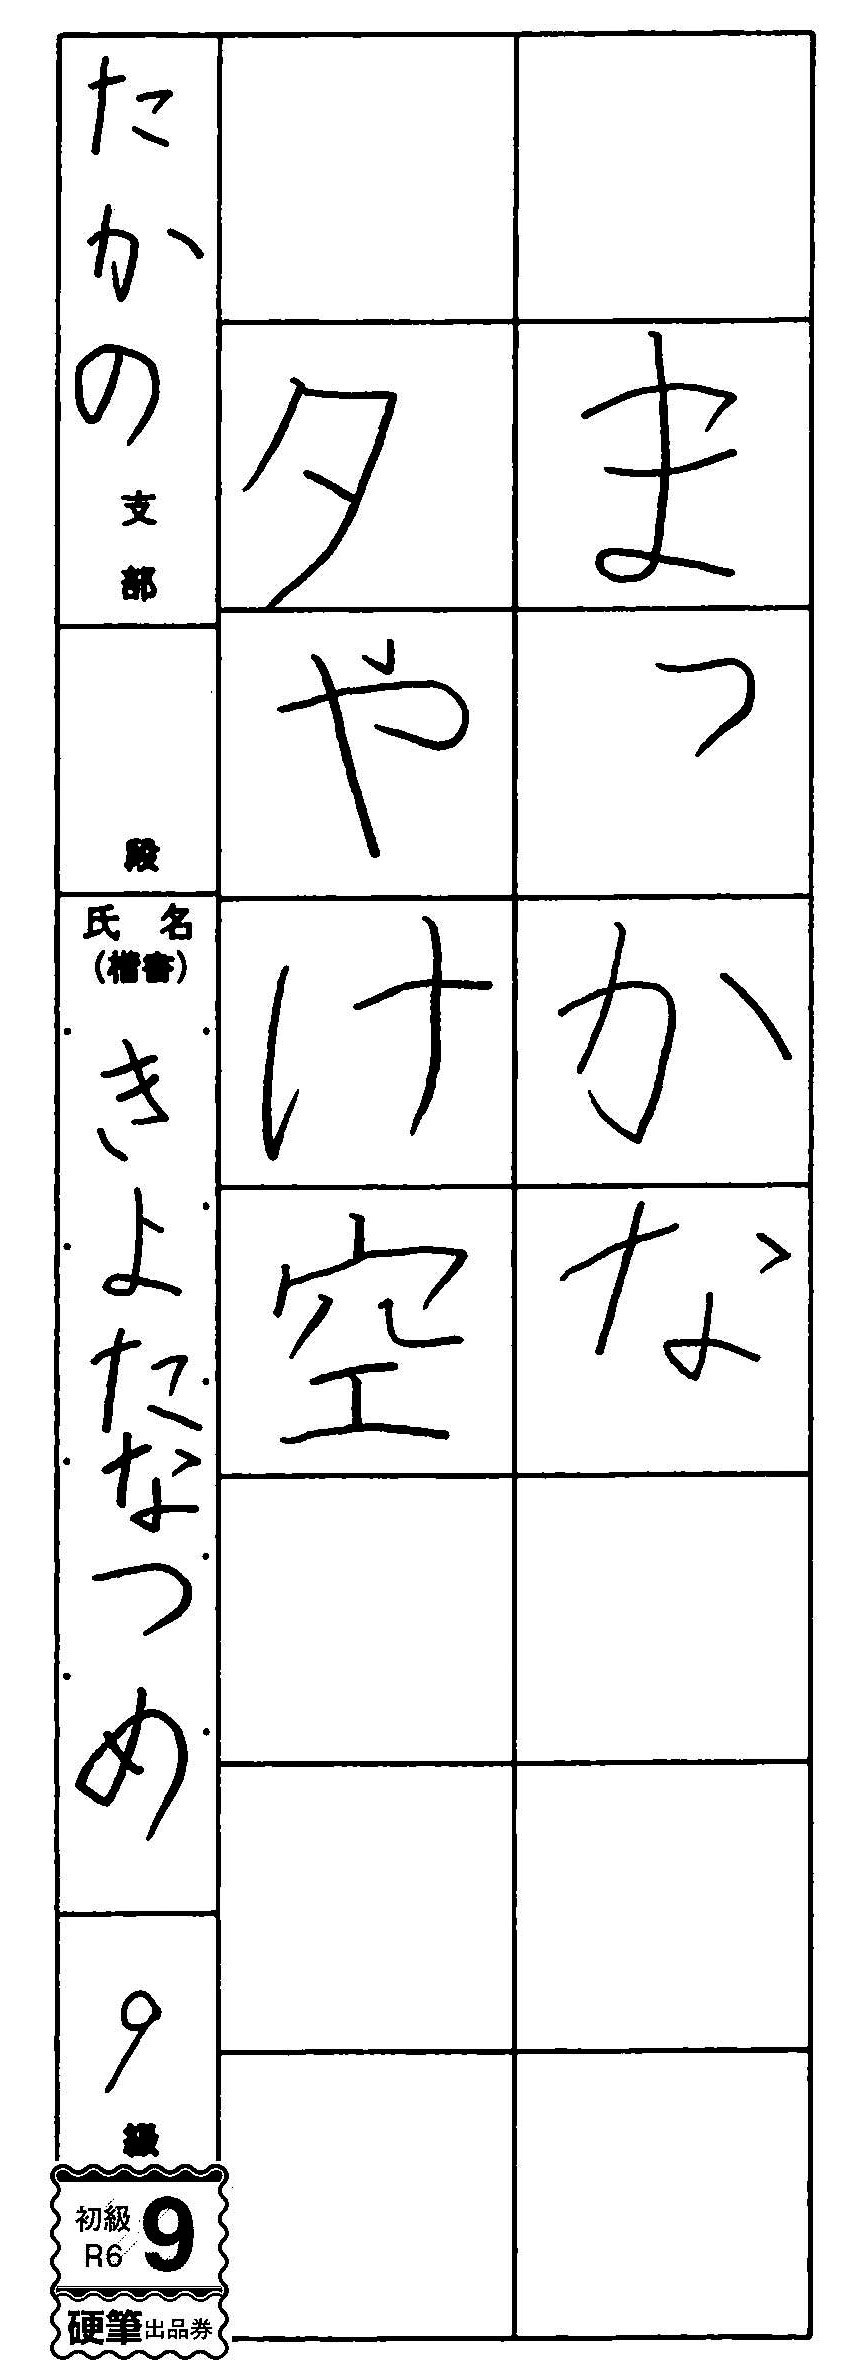 まっかな
夕やけ空
たかの支部
段
氏名
(楷書)
きよたなつめ
9級
初級
R6
9
硬筆出品券